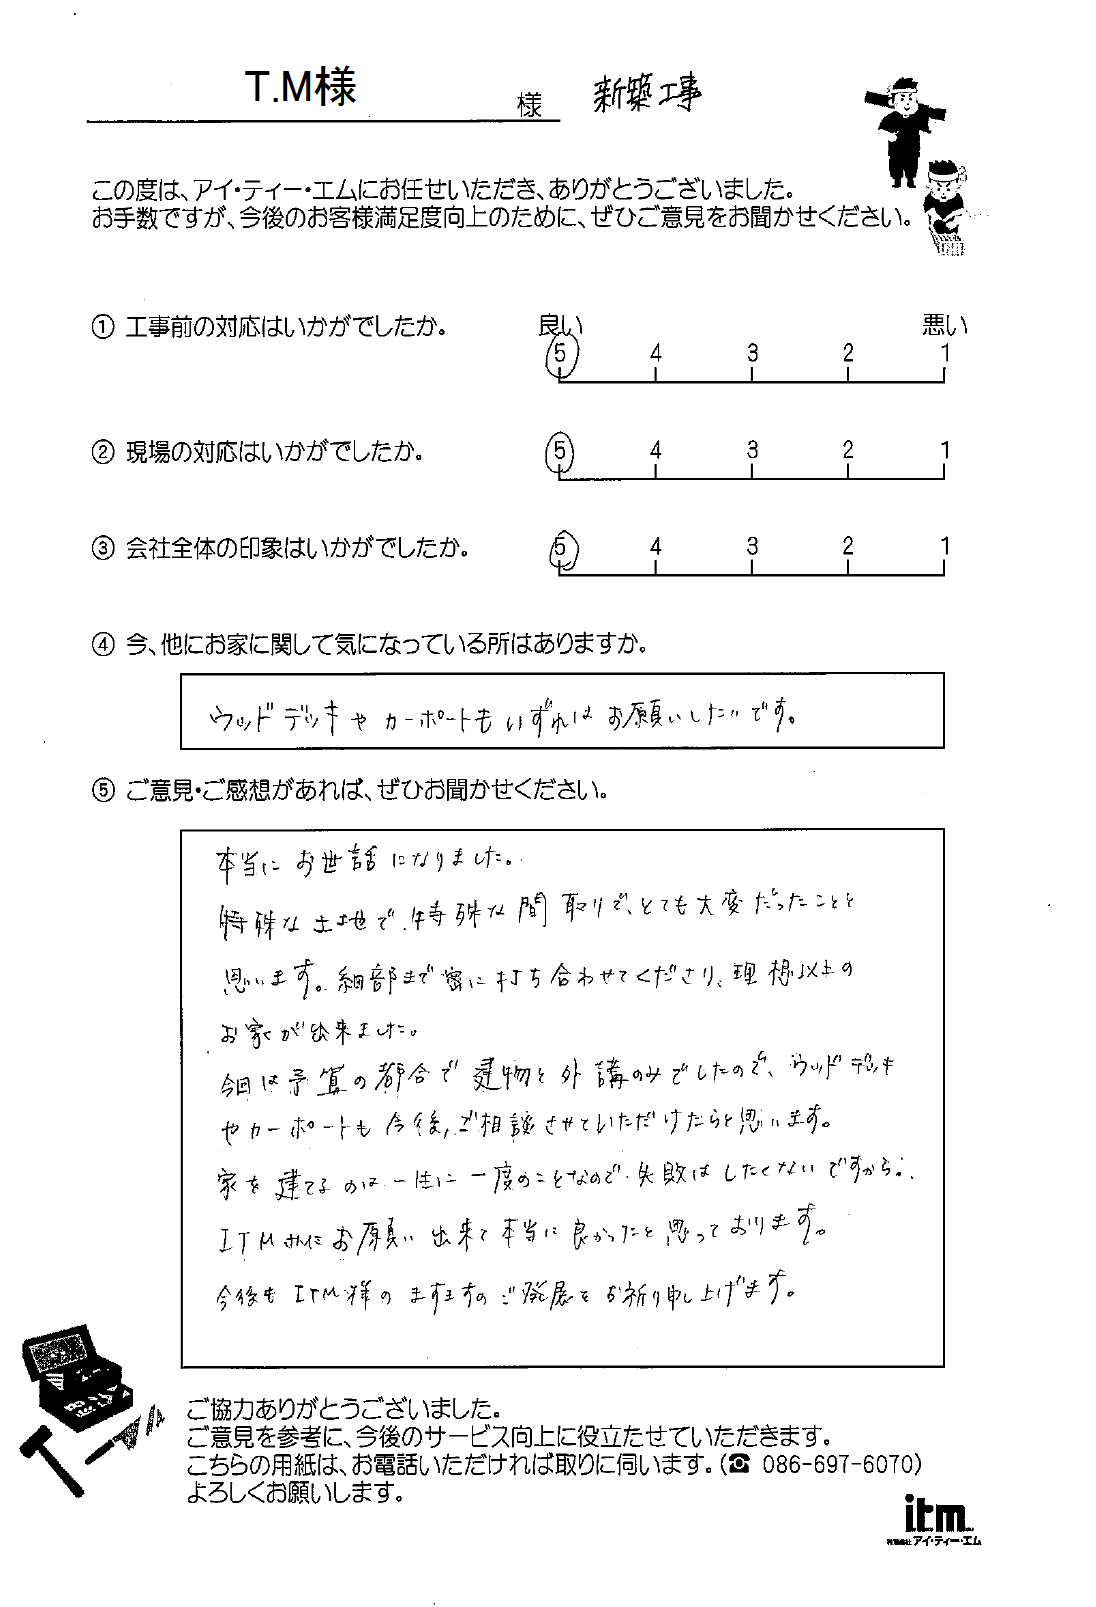 T.M様 様 新築工事
この度は、アイ・ティー・エムにお任せいただき、ありがとうございました。
お手数ですが、今後のお客様満足度向上のために、ぜひご意見をお聞かせください。
① 工事前の対応はいかがでしたか。 良い 悪い
5 4 3 2 1
② 現場の対応はいかがでしたか。 5 4 3 2 1
③ 会社全体の印象はいかがでしたか。 5 4 3 2 1
④ 今、他にお家に関して気になっている所はありますか。
ウッドデッキやカーポートもいずれはお願いしたいです。
⑤ ご意見・ご感想があれば、ぜひお聞かせください。
本当にお世話になりました。
特殊な土地で、特殊な間取りで、とても大変だったことと
思います。細部まで密に打ち合わせてくださり、理想以上の
お家が出来ました。
今回は予算の都合で建物と外講のみでしたので、ウッドデッキ
やカーポートも今後、ご相談させていただけたらと思います。
家を建てるのは一生に一度のことなので、失敗はしたくないですから。
ITMさんにお願い出来て本当に良かったと思っております。
今後もITM様のますますのご発展をお祈り申し上げます。
ご協力ありがとうございました。
ご意見を参考に、今後のサービス向上に役立たせていただきます。
こちらの用紙は、お電話いただければ取りに伺います。(☎ 086-697-6070)
よろしくお願いします。
itm
有限会社 アイ・ティー・エム